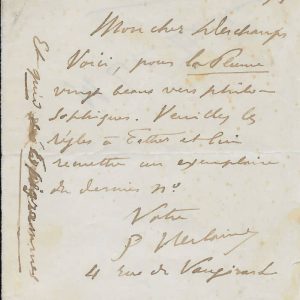 Mon cher Deschamps
Voici, pour la Plume
vingt beaux vers philo-
sophiques. Veuillez les
régler à Esther et lui
remettre un exemplaire
du dernier no.
Votre
P Verlaine
4 rue de Vaugirard
Et quid des Épigrammes